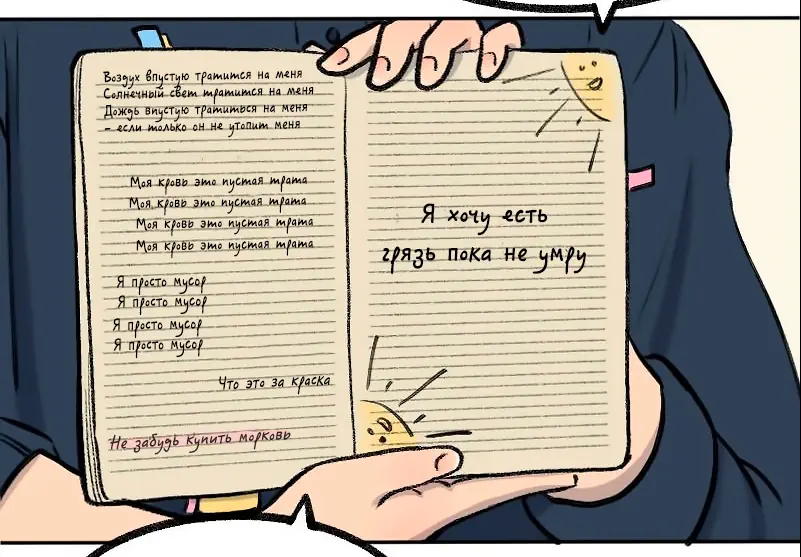 Воздух впустую тратится на меня
Солнечный свет тратится на меня
Дождь впустую тратиться на меня
- если только он не утопит меня
Моя кровь это пустая трата
Моя кровь это пустая трата
Моя кровь это пустая трата
Моя кровь это пустая трата
Я просто мусор
Я просто мусор
Я просто мусор
Я просто мусор
Что это за краска
Не забудь купить морковь
Я хочу есть
грязь пока не умру